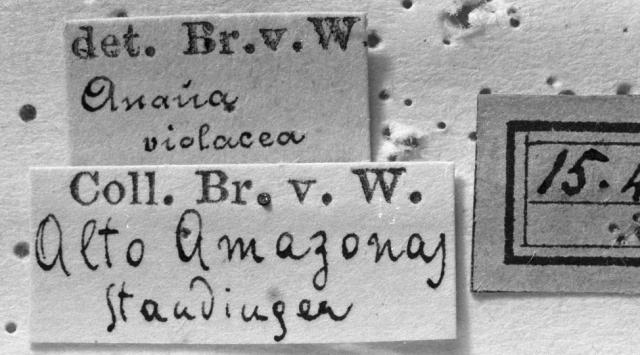 det. Br.v.W
Anaüa
violacea
Coll. Br. v. W.
Alto Amazonas
Staudinger
15.